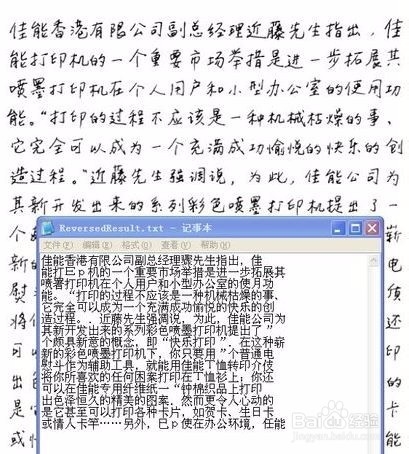 佳能香港有限公司副总经理近藤先生指出，佳
能打印机的一个重要市场举措是进一步拓展其
喷墨打印机在个人用户和小型办公室的使用功
能。“打印的过程不应该是一种机械枯燥的事、
它完全可以成为一个充满成功愉悦的快乐的创
造过程。”近藤先生强调说，为此，佳能公司为
其新开发出来的系列彩色喷墨打印机提出了一
个 崭
新的 电
熨
将 还
可 印
出 的
是 卡
或 能
ReversedResult.txt - 记事本
文件(F) 编辑(E) 格式(O) 查看(V) 帮助(H)
佳能香港有限公司副总经理骤先生指出，佳
能打巳p机的一个重要市场举措是进一步拓展其
喷署打印机在个人用户和小型办公室的使月功
能。“打印的过程不应该是一种机械枯燥的事、
它完全可以成为一个充满成功愉悦的快乐的创
造过程.．近藤先生强嬲说，为此，佳能公司为
其新开发出来的系列彩色喷墨打印机提出了”
个颇具新意的概念，即“快乐打印”．在这种崭
新的彩色喷墨打印机下，你只要用”个普通电
熨斗作为辅助工具，就能用佳能T恤转印介伎
将你所喜欢的任何困案打印在T恤衫上；你还
可以在佳能专用纤维纸—“钟棉织品上打印
出色泽恒久的精美的图案．然而更令人心动的
是它甚至可以打印各种卡片，如贺卡、生日卡
或情人卡竿……另外，巳p使在办公环境，任能
Baidu 经验
jingyan.baidu.com